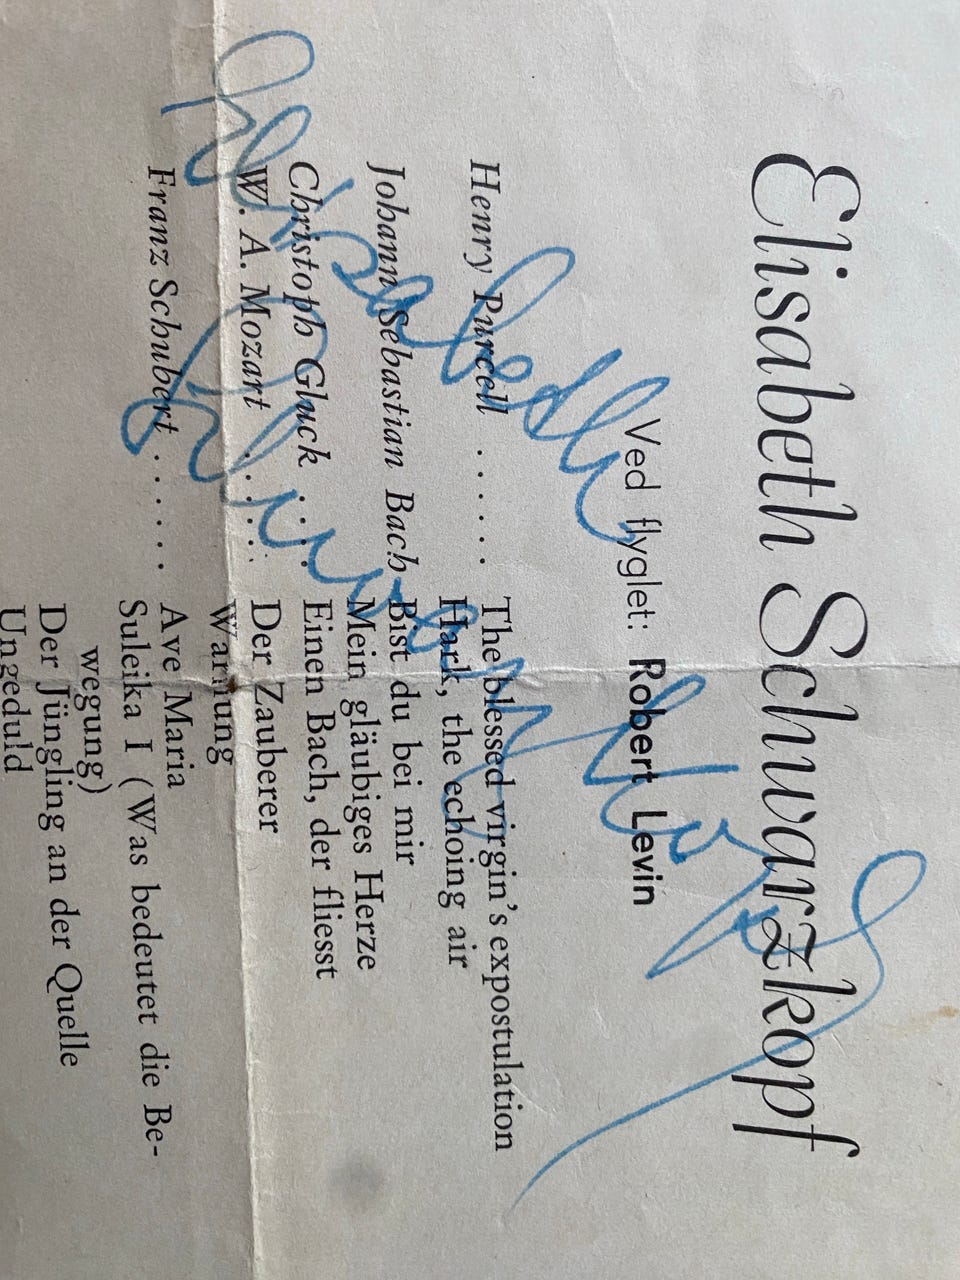 Elisabeth Schwarzkopf
Ved flyglet: Robert Levin
Henry Purcell ...... The blessed virgin's expostulation
Hark, the echoing air
Johann Sebastian Bach Bist du bei mir
Mein gläubiges Herze
Christoph Gluck .... Einen Bach, der fliesst
W. A. Mozart ...... Der Zauberer
Warnung
Franz Schubert ...... Ave Maria
Suleika I (Was bedeutet die Be-
wegung)
Der Jüngling an der Quelle
Ungeduld
Elisabeth
Schwarzkopf